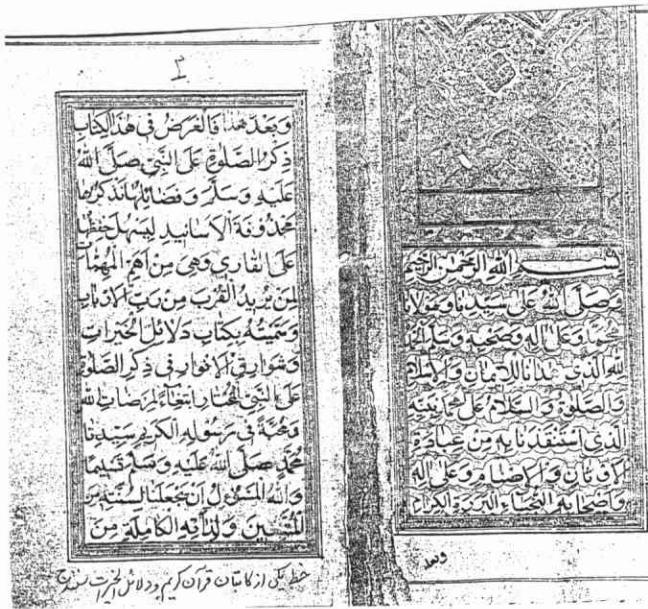 بسم الله الرحمن الرحيم
وَصَلَّى اللهُ عَلَى سَيِّدِنَا وَمَوْلَانَا
مُحَمَّدٍ وَعَلَى اٰلِهِ وَصَحْبِهِ وَسَلَّمَ الْحَمْدُ
لِلهِ الَّذِي هَدَانَا لِلْاِيمَانِ وَالْاِسْلَامِ
وَالصَّلٰوةُ وَالسَّلَامُ عَلَى مُحَمَّدٍ نَبِيِّهِ
الَّذِي اسْتَنْقَذَنَا بِهِ مِنْ عِبَادَةِ
الْاَوْثَانِ وَالْاَصْنَامِ وَعَلَى اٰلِهِ
وَاَصْحَابِهِ النُّجَبَاءِ الْبَرَرَةِ الْكِرَامِ
وبعد
٢
وَبَعْدَ هٰذَا فَالْغَرَضُ فِي هٰذَا الْكِتَابِ
ذِكْرُ الصَّلٰوةِ عَلَى النَّبِيِّ صَلَّى اللهُ
عَلَيْهِ وَسَلَّمَ وَفَضَائِلِهَا نَذْكُرُهَا
مَحْذُوفَةَ الْاَسَانِيدِ لِيَسْهُلَ حِفْظُهَا
عَلَى الْقَارِي وَهِيَ مِنْ اَهَمِّ الْمُهِمَّاتِ
لِمَنْ يُرِيدُ الْقُرْبَ مِنْ رَبِّ الْاَرْبَابِ
وَسَمَّيْتُهُ بِكِتَابِ دَلَائِلِ الْخَيْرَاتِ
وَشَوَارِقِ الْاَنْوَارِ فِي ذِكْرِ الصَّلٰوةِ
عَلَى النَّبِيِّ الْمُخْتَارِ ابْتِغَاءً لِمَرْضَاتِ اللهِ
وَمَحَبَّةً فِي رَسُولِهِ الْكَرِيمِ سَيِّدِنَا
مُحَمَّدٍ صَلَّى اللهُ عَلَيْهِ وَسَلَّمَ تَسْلِيمًا
وَاللهُ الْمَسْئُولُ اَنْ يَجْعَلَنَا لِسُنَّتِهِ مِنَ
الْمُتَّبِعِينَ وَلِذَاتِهِ الْكَامِلَةِ مِنَ
خط یکی از کاتبان قرآن کریم و دلائل الخیرات سنندج